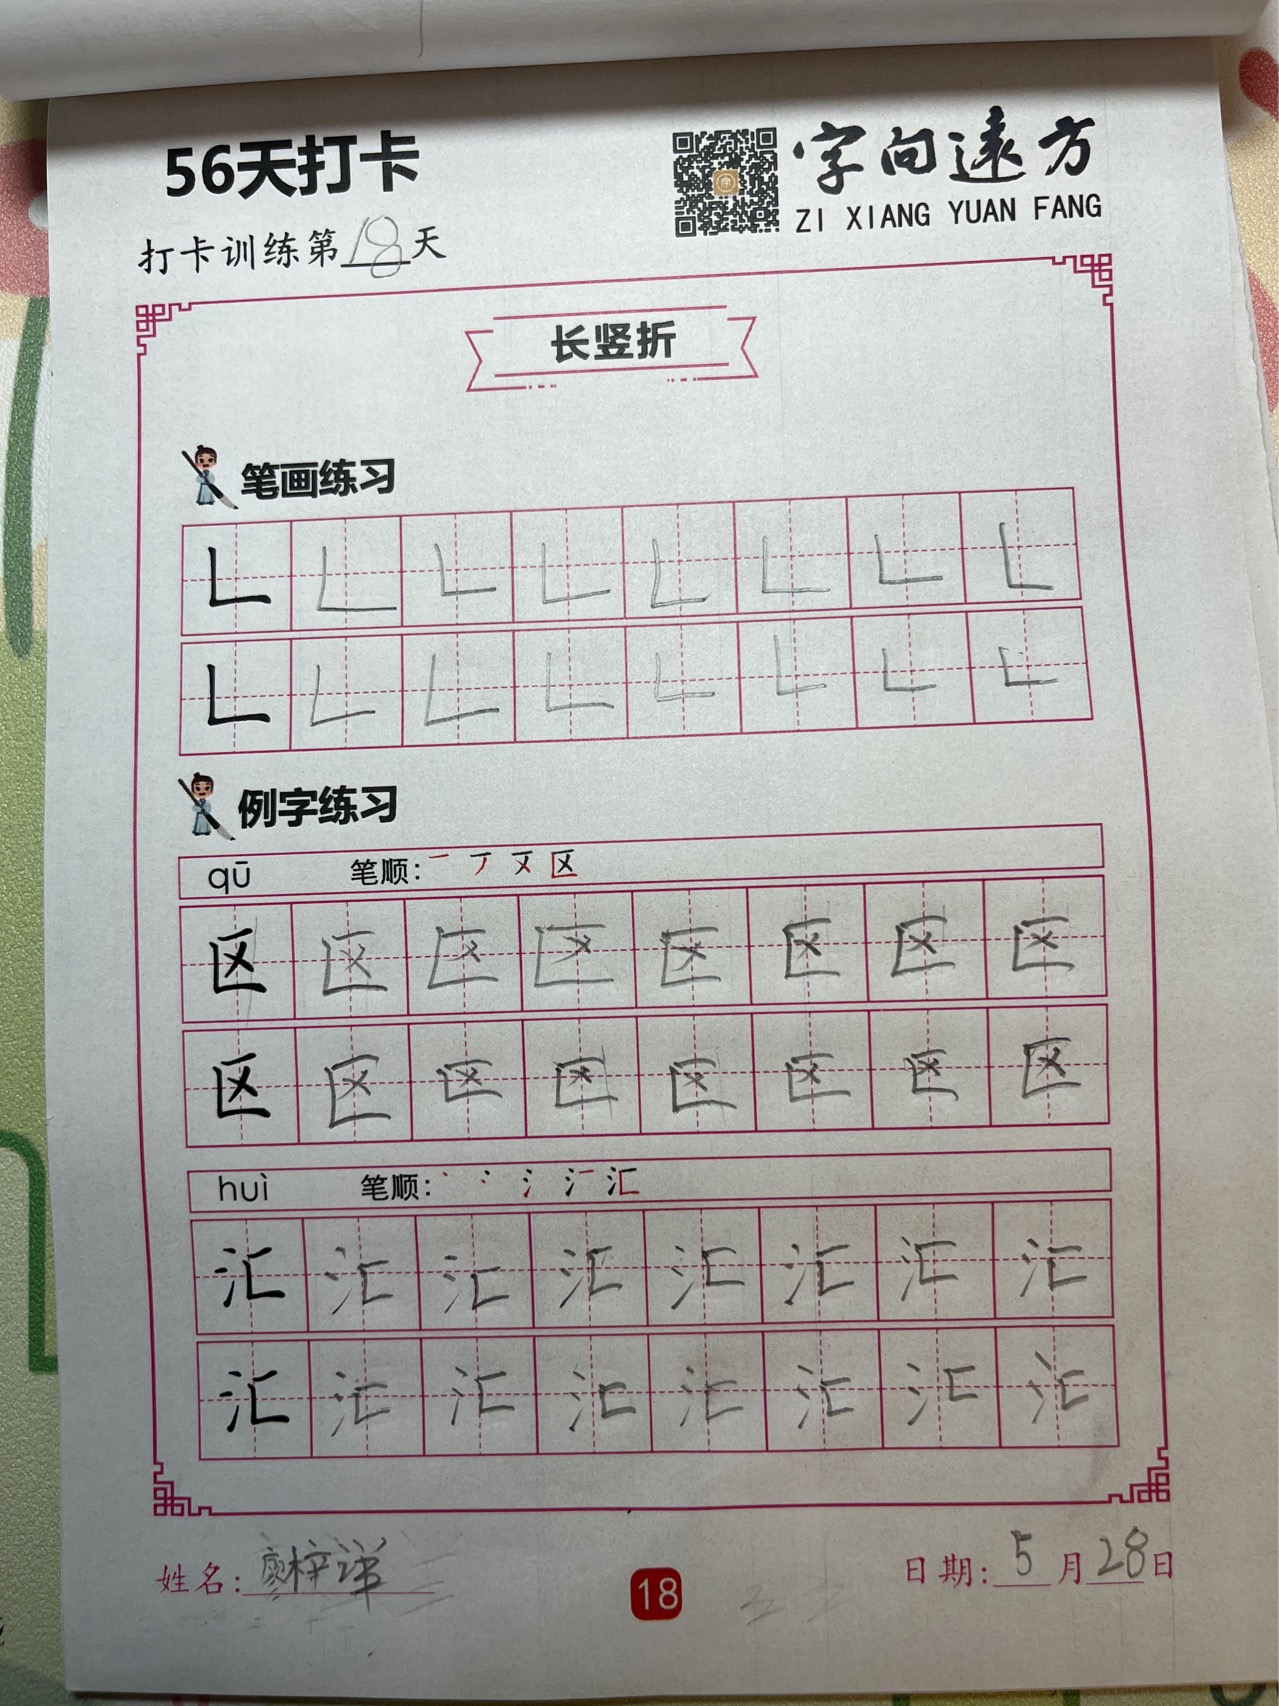 56天打卡
字向遠方
ZI XIANG YUAN FANG
打卡训练第18天
长竖折
笔画练习
𠃊 𠃊 𠃊 𠃊 𠃊 𠃊 𠃊 𠃊
𠃊 𠃊 𠃊 𠃊 𠃊 𠃊 𠃊 𠃊
例字练习
qū 笔顺: 一 丆 区
区 区 区 区 区 区 区 区
区 区 区 区 区 区 区 区
huì 笔顺: 丶 冫 氵 汇
汇 汇 汇 汇 汇 汇 汇 汇
汇 汇 汇 汇 汇 汇 汇 汇
姓名: 廖梓洋
日期: 5月28日
18